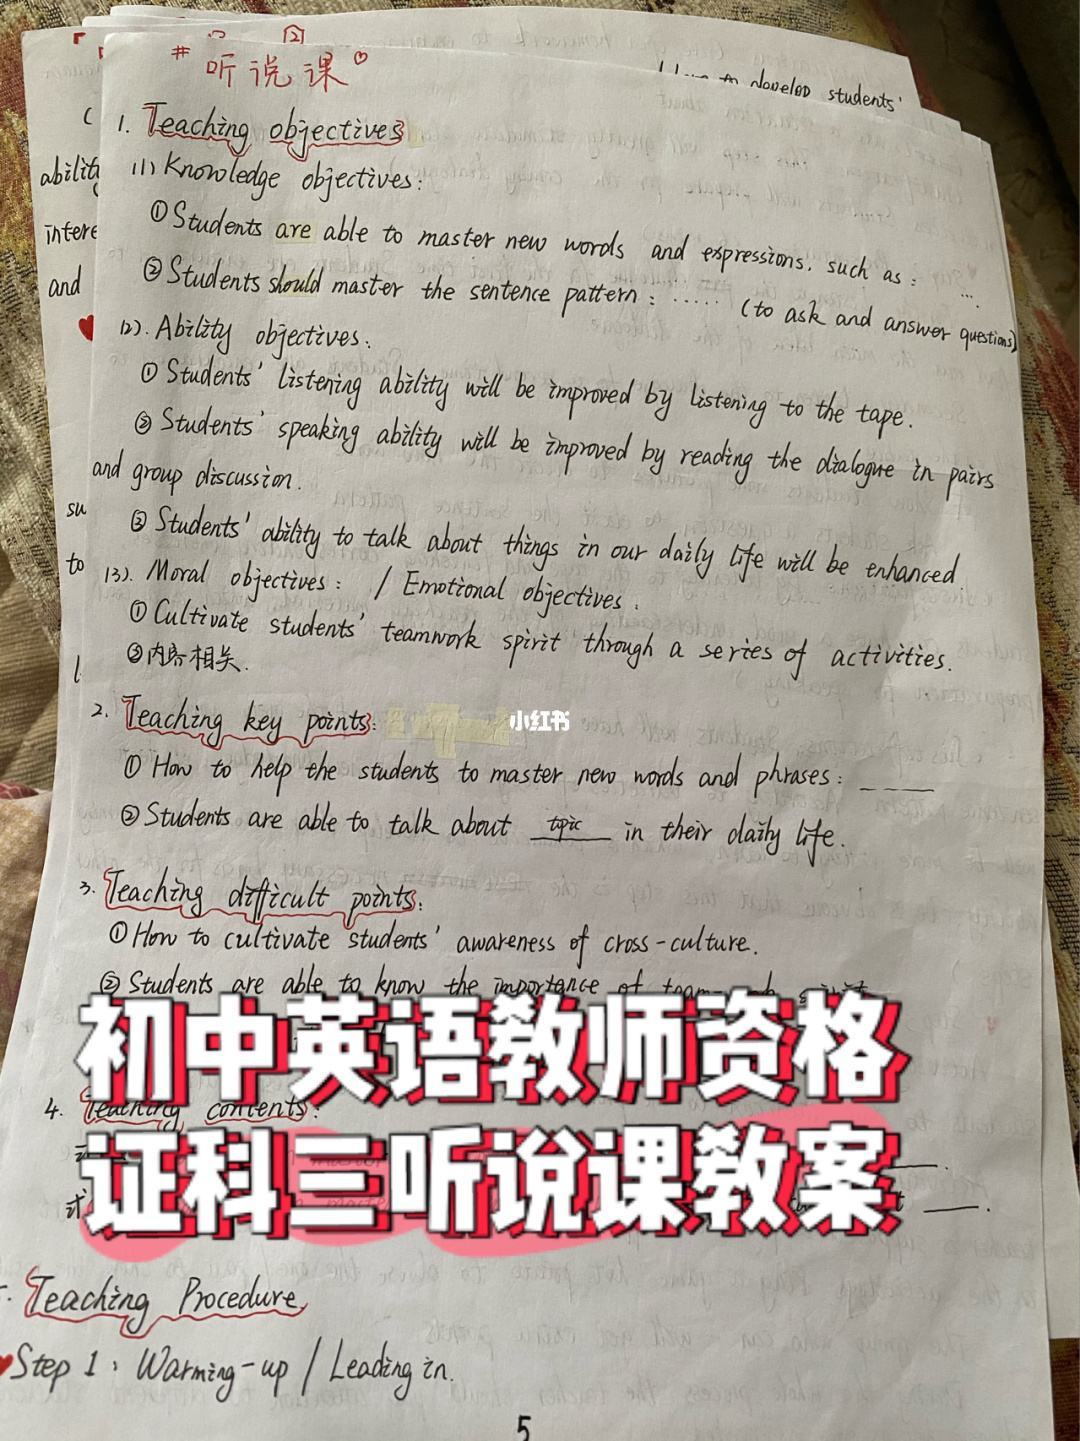 # 听说课
to develop students'
1. Teaching objectives
ability
(1) Knowledge objectives:
intere
① Students are able to master new words and expressions. such as: ...
and
② Students should master the sentence pattern: ...... (to ask and answer questions)
(2). Ability objectives:
① Students' listening ability will be improved by listening to the tape.
② Students' speaking ability will be improved by reading the dialogue in pairs
and group discussion.
su
③ Students' ability to talk about things in our daily life will be enhanced.
to
(3). Moral objectives: / Emotional objectives:
① Cultivate students' teamwork spirit through a series of activities.
②内容相关.
2. Teaching key points:
小红书
① How to help the students to master new words and phrases: ____
② Students are able to talk about topic in their daily life.
3. Teaching difficult points:
① How to cultivate students' awareness of cross-culture.
② Students are able to know the importance of
初中英语教师资格
4. Teaching contents:
证科三听说课教案
Teaching Procedure
Step 1: Warming-up / Leading in.
5